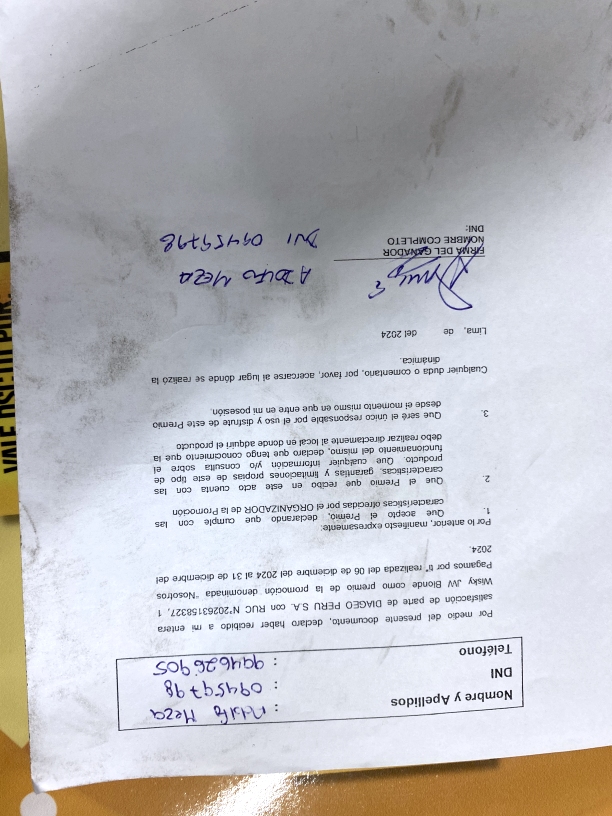 Nombre y Apellidos : Adolfo Meza
DNI : 09459798
Teléfono : 994626905
Por medio del presente documento, declaro haber recibido a mi entera
satisfacción de parte de DIAGEO PERU S.A. con RUC N°20263158327, 1
Wisky JW Blonde como premio de la promoción denominada "Nosotros
Pagamos por ti" realizada del 06 de diciembre del 2024 al 31 de diciembre del
2024.
Por lo anterior, manifiesto expresamente:
1. Que acepto el Premio, declarando que cumple con las
características ofrecidas por el ORGANIZADOR de la Promoción
2. Que el Premio que recibo en este acto cuenta con las
características, garantías y limitaciones propias de este tipo de
producto. Que cualquier información y/o consulta sobre el
funcionamiento del mismo, declaro que tengo conocimiento que la
debo realizar directamente al local en donde adquirí el producto
3. Que seré el único responsable por el uso y disfrute de este Premio
desde el momento mismo en que entre en mi posesión.
Cualquier duda o comentario, por favor, acercarse al lugar dónde se realizó la
dinámica.
Lima, de del 2024
ADOLFO MEZA
FIRMA DEL GANADOR
NOMBRE COMPLETO
DNI:
DNI 09459798